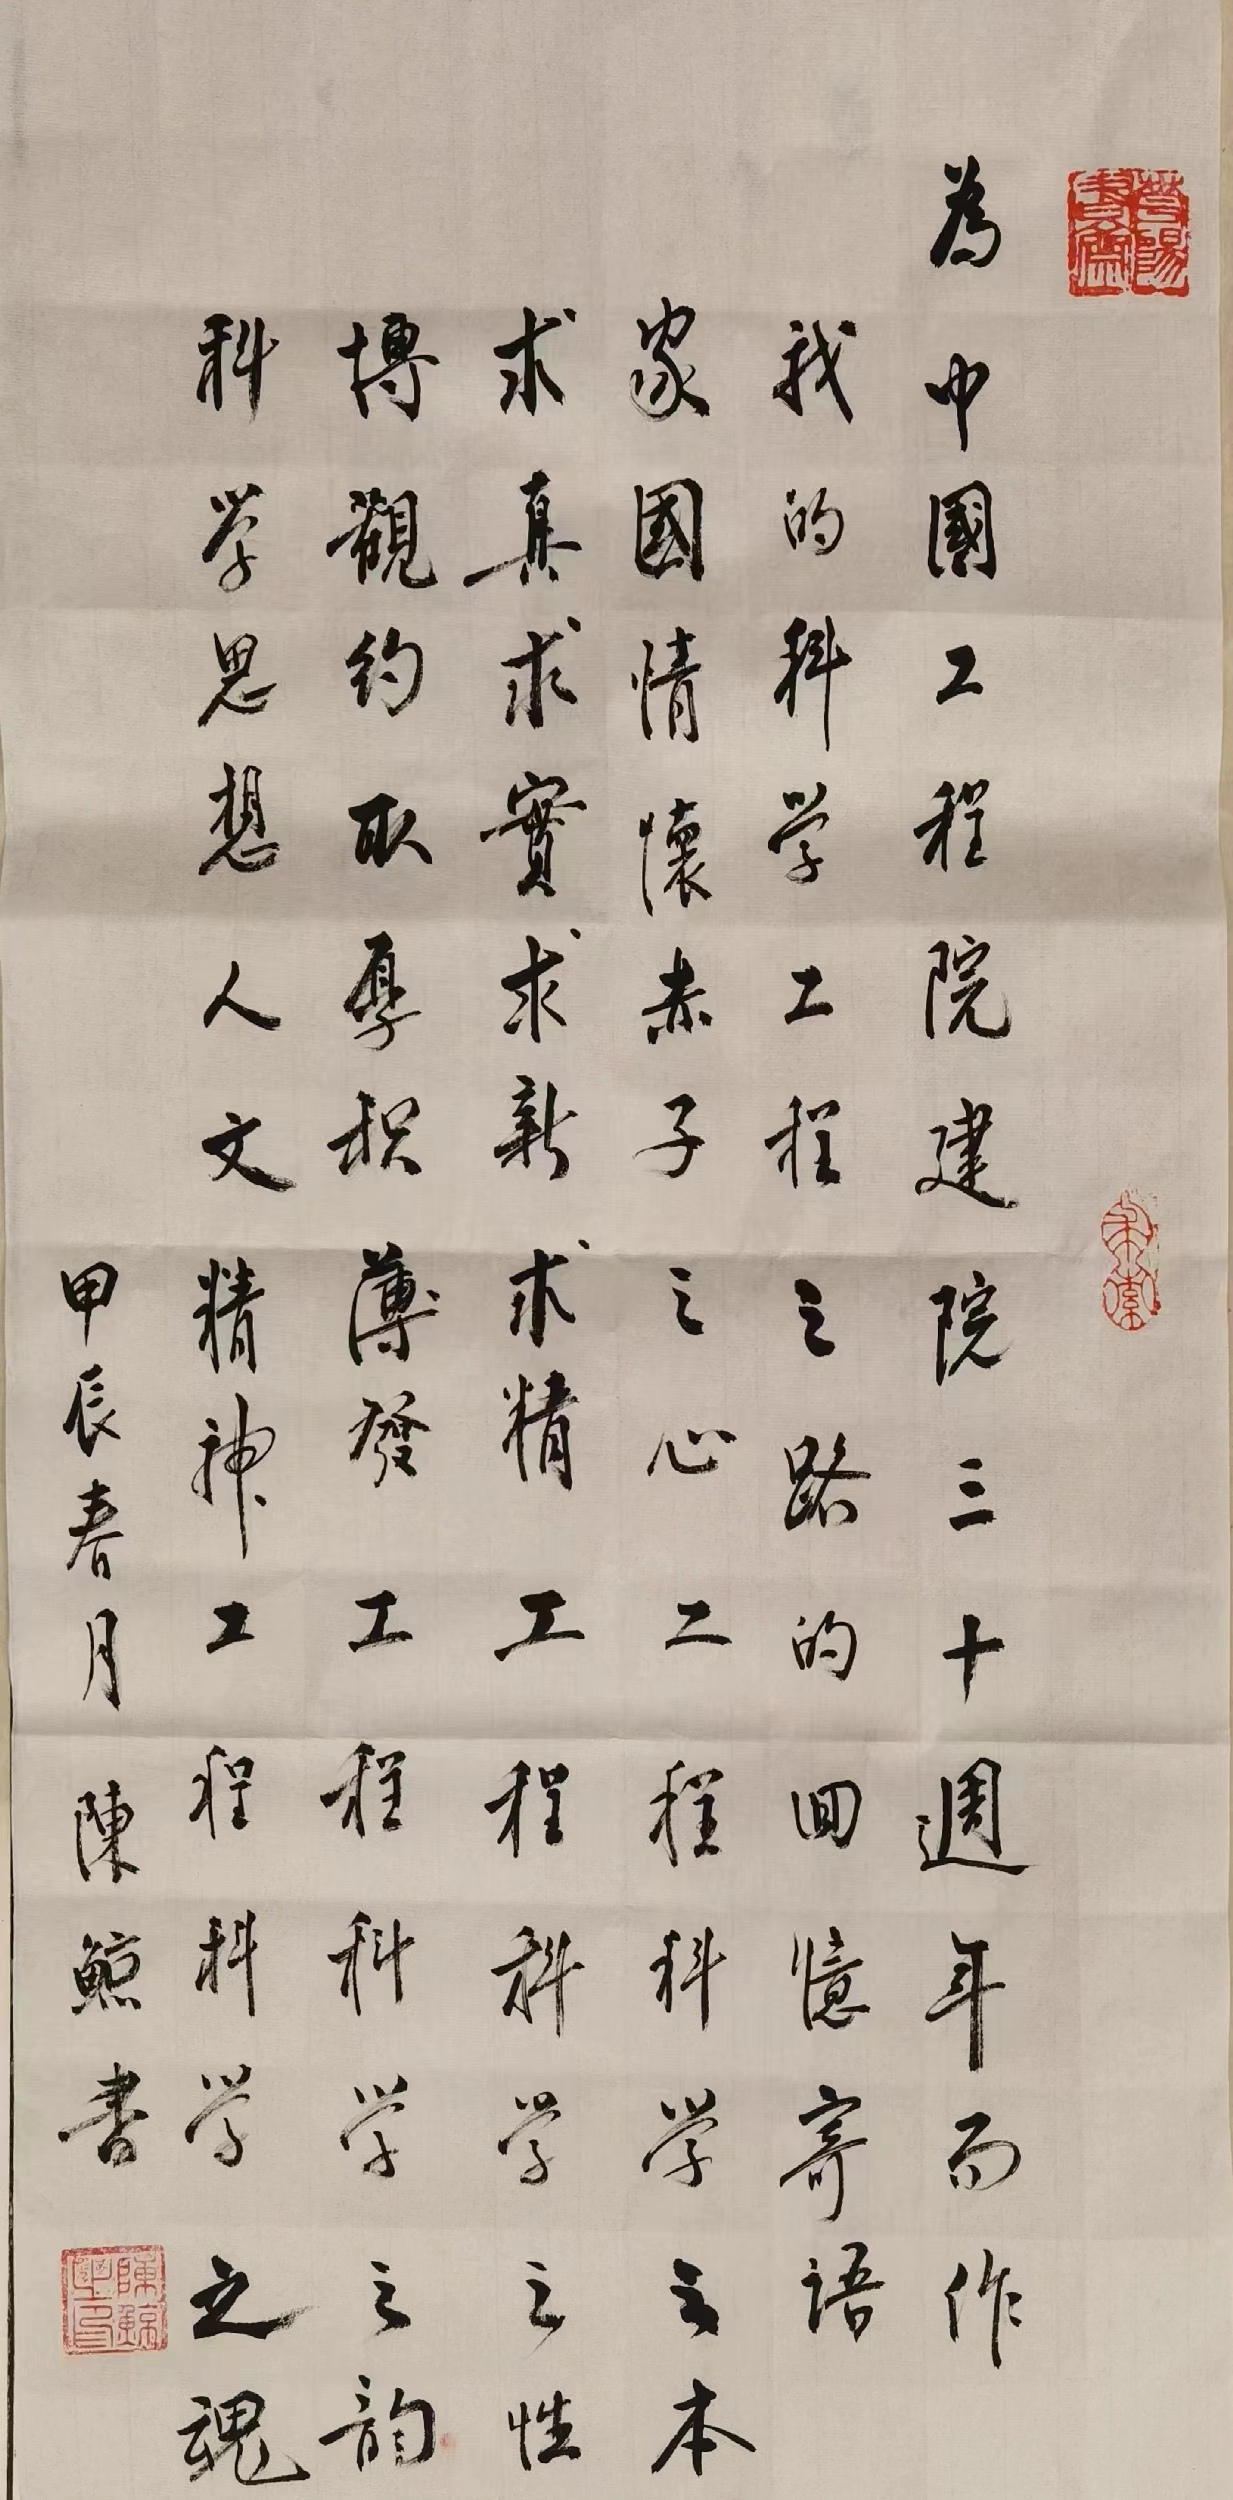 為中國工程院建院三十週年而作
我的科学工程之路的回憶寄語
家國情懷赤子之心工程科学之本
求真求實求新求精工程科学之性
博觀約取厚积薄發工程科学之韵
科学思想人文精神工程科学之魂
甲辰春月陳鯨書
陳鯨之印